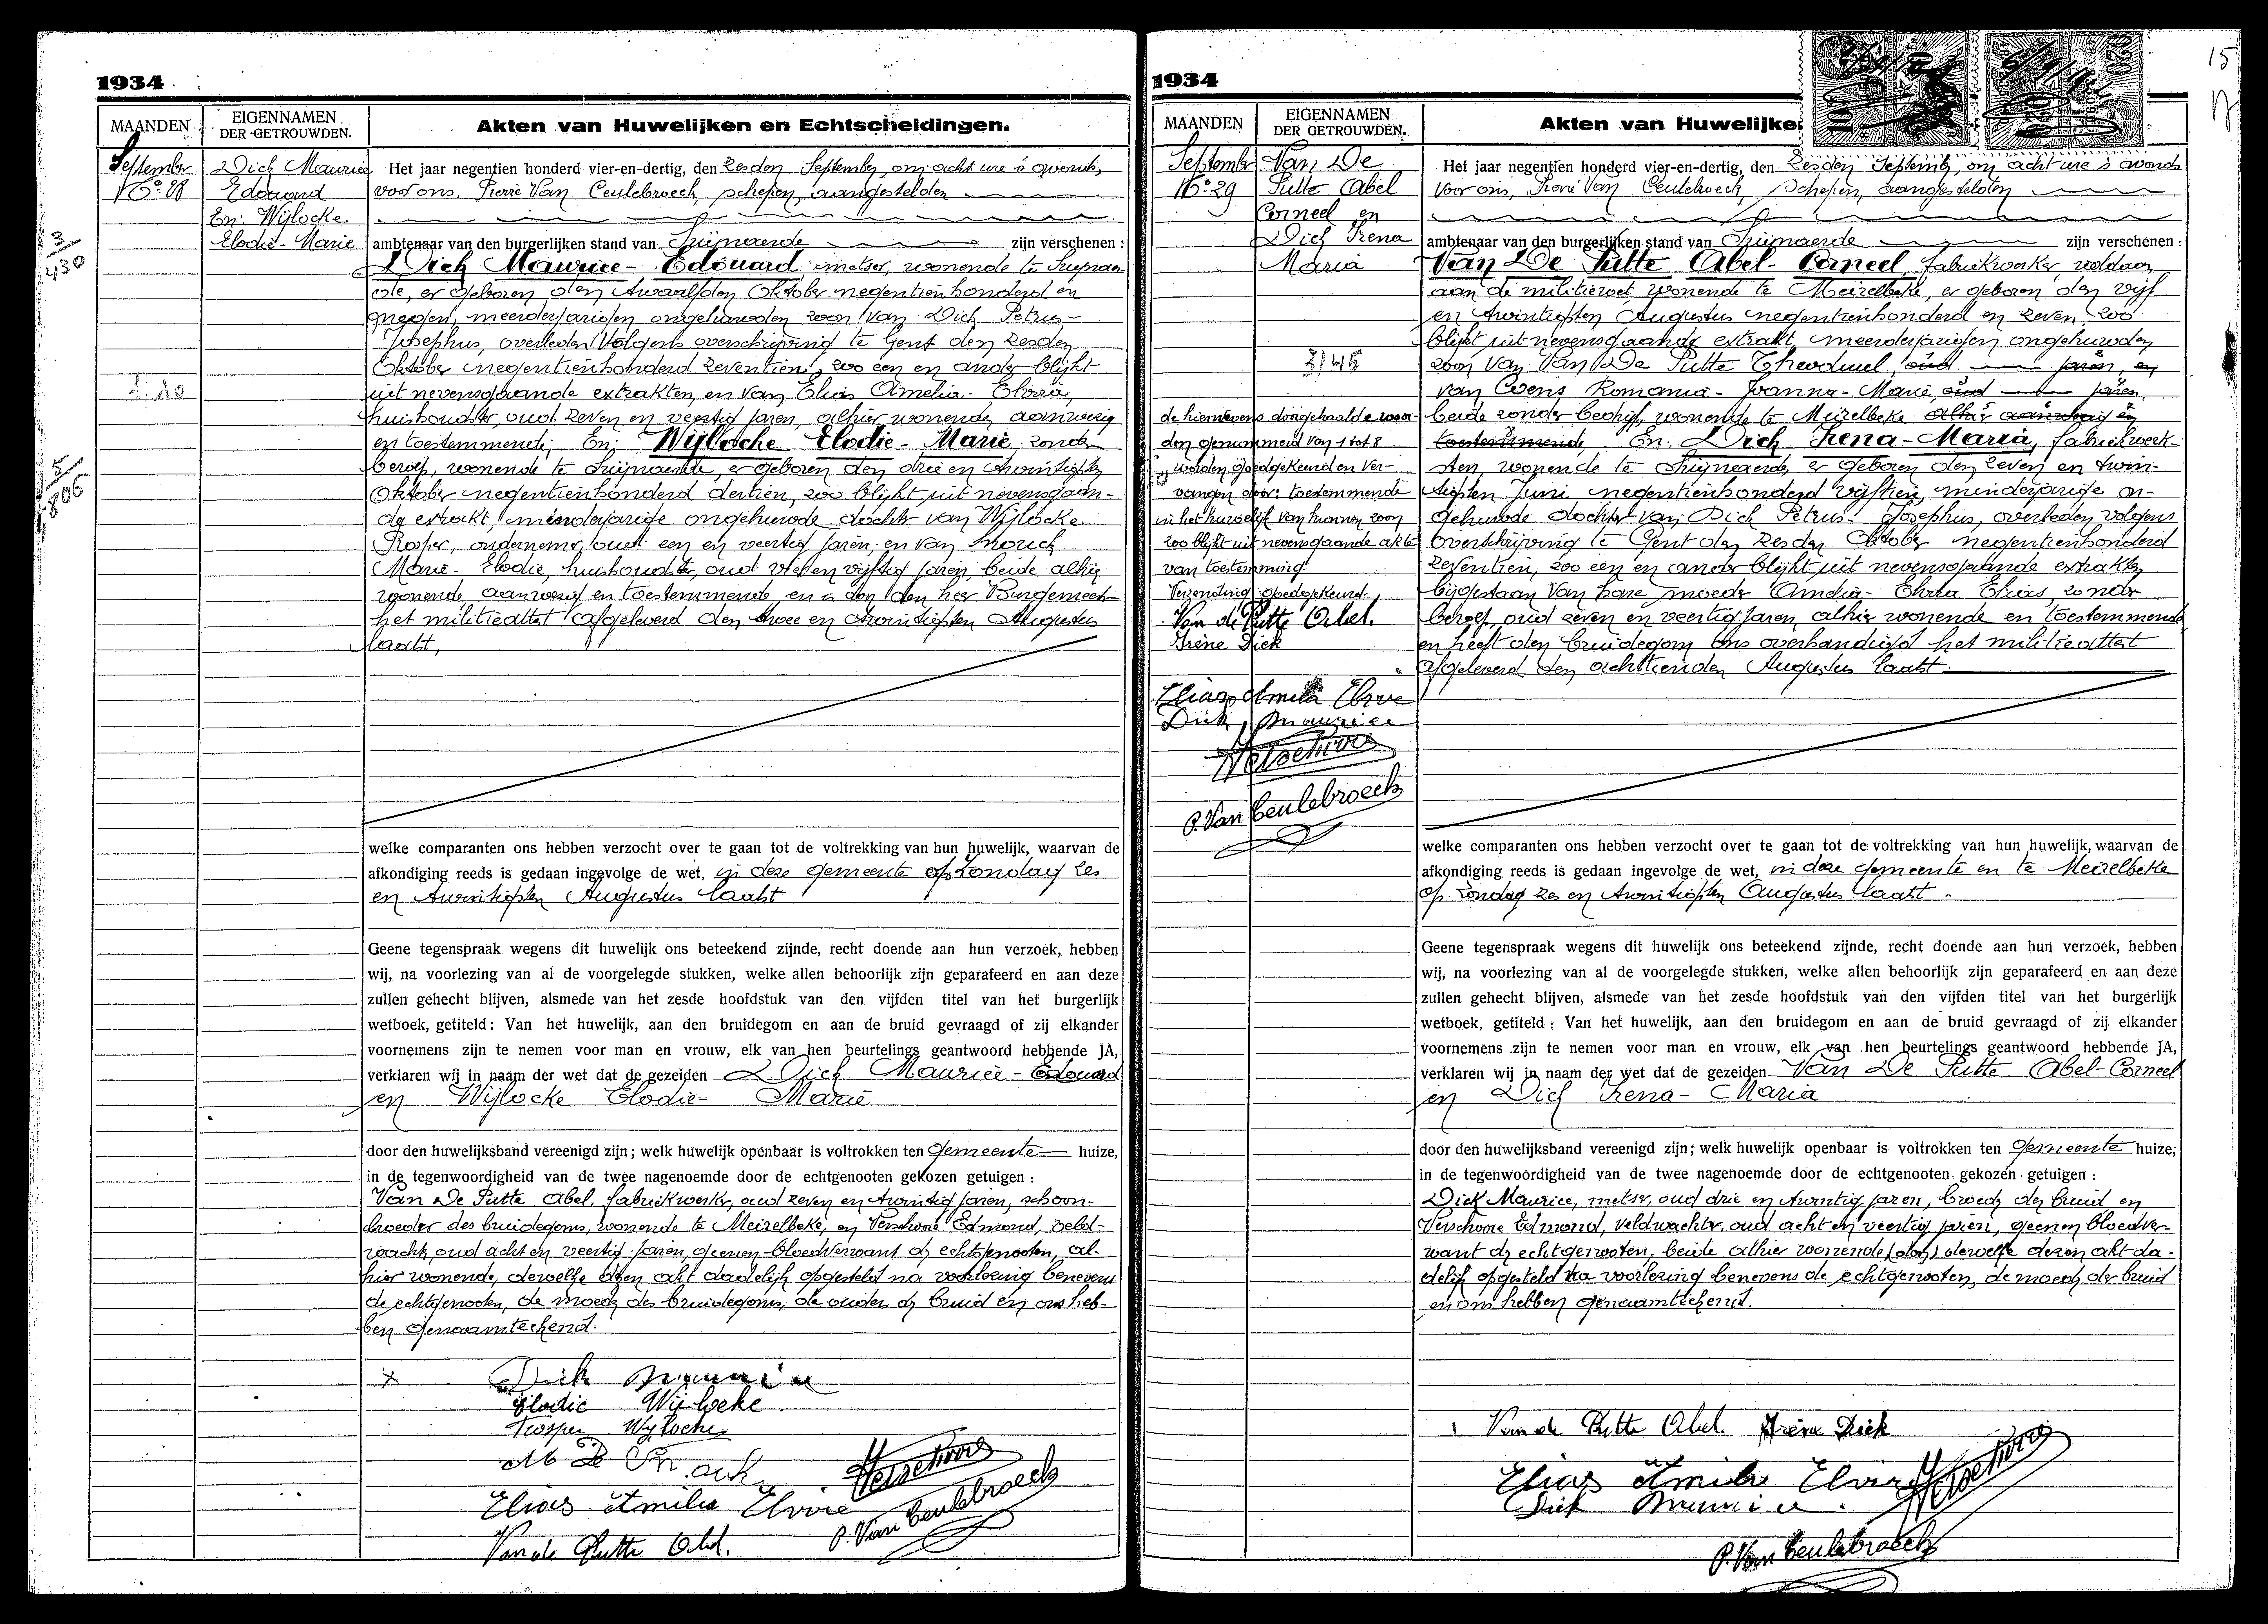 1934
MAANDEN
EIGENNAMEN
DER GETROUWDEN.
Akten van Huwelijken en Echtscheidingen.
September
No 28
Dick Maurice
Edouard
En: Wijlocke
Elodie-Marie
3/430
5/806
Het jaar negentien honderd vier-en-dertig, den zesden September, om acht ure 's avonds,
voor ons, Pierre Van Ceulebroeck, schepen, aangestelden
ambtenaar van den burgerlijken stand van zijn verschenen :
Dick Maurice-Edouard, metser, wonende te
de, er geboren den twaalfden Oktober negentienhonderd en
negen, meerderjarigen ongehuwden zoon van Dick Petrus-
Josephus, overleden volgens overschrijving te Gent den zesden
Oktober negentienhonderd zeventien, zoo een en ander blijkt
uit nevensgaande extrakten, en van Elias Amelia-
huishoudster, oud zeven en veertig jaren, alhier wonende, aanwezig
en toestemmende; En: Wijlocke Elodie-Marie zonder
beroep, wonende te er geboren den drie en twintigsten
Oktober negentienhonderd dertien, zoo blijkt uit nevensgaan-
de extrakt, minderjarige ongehuwde dochter van Wijlocke
Prosper, ondernemer, oud een en veertig jaren, en van
Marie-Elodie, huishoudster, oud vijftig jaren, beide alhier
wonende aanwezig en toestemmende en is door den heer Burgemeester
het militieattest afgeleverd den twee en twintigsten Augustus
laatst,
welke comparanten ons hebben verzocht over te gaan tot de voltrekking van hun huwelijk, waarvan de
afkondiging reeds is gedaan ingevolge de wet, in deze gemeente op Zondag zes
en twintigsten Augustus laatst
Geene tegenspraak wegens dit huwelijk ons beteekend zijnde, recht doende aan hun verzoek, hebben
wij, na voorlezing van al de voorgelegde stukken, welke allen behoorlijk zijn geparafeerd en aan deze
zullen gehecht blijven, alsmede van het zesde hoofdstuk van den vijfden titel van het burgerlijk
wetboek, getiteld : Van het huwelijk, aan den bruidegom en aan de bruid gevraagd of zij elkander
voornemens zijn te nemen voor man en vrouw, elk van hen beurtelings geantwoord hebbende JA,
verklaren wij in naam der wet dat de gezeiden Dick Maurice-Edouard
en Wijlocke Elodie- Marie
door den huwelijksband vereenigd zijn; welk huwelijk openbaar is voltrokken ten Gemeente huize,
in de tegenwoordigheid van de twee nagenoemde door de echtgenooten gekozen getuigen :
Van De Putte Abel, fabriekwerker, oud zeven en twintig jaren, schoon-
broeder des bruidegoms, wonende te Meirelbeke, en Verschoore Edmond, veld-
wachter, oud acht en veertig jaren, geenen bloedverwant der echtgenooten, al-
hier wonende, dewelke dezen akt dadelijk opgesteld na voorlezing benevens
de echtgenooten, de moeder des bruidegoms, de ouders der bruid en ons heb-
ben genaamteekend.
Dick Maurice
Elodie Wijlocke
Prosper Wijlocke
Elias Amilia Elvire
Van de Putte Abel.
P. Van Ceulebroeck
1934
15
MAANDEN
EIGENNAMEN
DER GETROUWDEN.
Akten van Huwelijke
September
No 29
Van De
Putte Abel
Corneel en
Dick Irena
Maria
Het jaar negentien honderd vier-en-dertig, den zesden September, om acht ure 's avonds
voor ons, Pierre Van Ceulebroeck, schepen, aangestelden
ambtenaar van den burgerlijken stand van zijn verschenen :
Van De Putte Abel-Corneel, fabriekwerker, voldaan
aan de militiewet wonende te Meirelbeke, er geboren den vijf
en twintigsten Augustus negentienhonderd en zeven, zoo
blijkt uit nevensgaande extrakt, meerderjarigen ongehuwden
zoon van Van De Putte Theoduul, oud jaren, en
van Coens Romania-Joanna-Marie, oud jaren,
beide zonder bedrijf, wonende te Meirelbeke alhier aanwezig en
toestemmende, En: Dick Irena-Maria, fabriekwerk-
ster, wonende te er geboren den zeven en twin-
tigsten Juni negentienhonderd vijftien, minderjarige on-
gehuwde dochter van Dick Petrus-Josephus, overleden volgens
overschrijving te Gent den zesden Oktober negentienhonderd
zeventien, zoo een en ander blijkt uit nevensgaande extrakten
bijgestaan van hare moeder Amelia- Elias, zonder
beroep, oud zeven en veertig jaren, alhier wonende en toestemmende
en heeft den bruidegom ons overhandigd het militieattest
afgeleverd den achttienden Augustus laatst
de hiernevens doorgehaalde woor-
den genummerd van 1 tot 8
worden goedgekeurd en ver-
vangen door: toestemmende
in het huwelijk van hunnen zoon
zoo blijkt uit nevensgaande akte
van toestemming.
Verzending goedgekeurd.
Van de Putte Abel.
Irène Dick
Elias Amilia Elvire
Dick Maurice
P. Van Ceulebroeck
welke comparanten ons hebben verzocht over te gaan tot de voltrekking van hun huwelijk, waarvan de
afkondiging reeds is gedaan ingevolge de wet, in deze gemeente en te Meirelbeke
op Zondag zes en twintigsten Augustus laatst
Geene tegenspraak wegens dit huwelijk ons beteekend zijnde, recht doende aan hun verzoek, hebben
wij, na voorlezing van al de voorgelegde stukken, welke allen behoorlijk zijn geparafeerd en aan deze
zullen gehecht blijven, alsmede van het zesde hoofdstuk van den vijfden titel van het burgerlijk
wetboek, getiteld : Van het huwelijk, aan den bruidegom en aan de bruid gevraagd of zij elkander
voornemens zijn te nemen voor man en vrouw, elk van hen beurtelings geantwoord hebbende JA,
verklaren wij in naam der wet dat de gezeiden Van De Putte Abel-Corneel
en Dick Irena-Maria
door den huwelijksband vereenigd zijn; welk huwelijk openbaar is voltrokken ten Gemeente huize;
in de tegenwoordigheid van de twee nagenoemde door de echtgenooten gekozen getuigen :
Dick Maurice, metser, oud drie en twintig jaren, broeder der bruid en
Verschoore Edmond, veldwachter, oud acht en veertig jaren, geenen bloedver-
want der echtgenooten, beide alhier wonende, dewelke dezen akt da-
delijk opgesteld na voorlezing benevens de echtgenooten, de moeder der bruid
en ons hebben genaamteekend.
Van de Putte Abel. Irène Dick
Elias Amilia Elvire
Dick Maurice.
P. Van Ceulebroeck